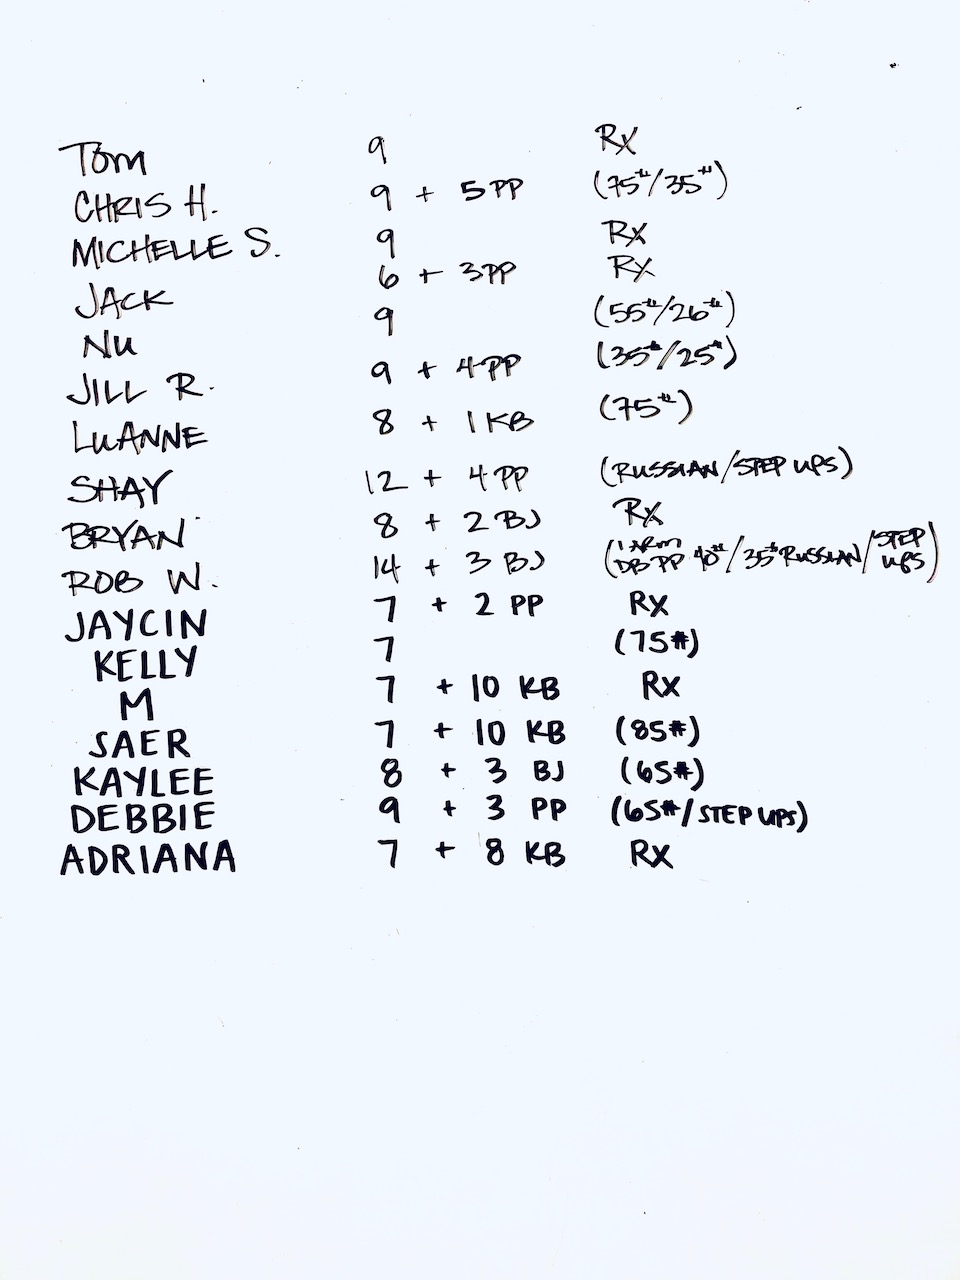 Tom 9 Rx
CHRIS H. 9 + 5 PP (75#/35#)
MICHELLE S. 9 Rx
JACK 6 + 3 PP Rx
NU 9 (55#/26#)
JILL R. 9 + 4 PP (35#/25#)
LUANNE 8 + 1 KB (75#)
SHAY 12 + 4 PP (RUSSIAN/STEP UPS)
BRYAN 8 + 2 BJ Rx
ROB W. 14 + 3 BJ (1 ARM DB PP 40#/35# RUSSIAN/STEP UPS)
JAYCIN 7 + 2 PP Rx
KELLY 7 (75#)
M 7 + 10 KB Rx
SAER 7 + 10 KB (85#)
KAYLEE 8 + 3 BJ (65#)
DEBBIE 9 + 3 PP (65#/STEP UPS)
ADRIANA 7 + 8 KB Rx